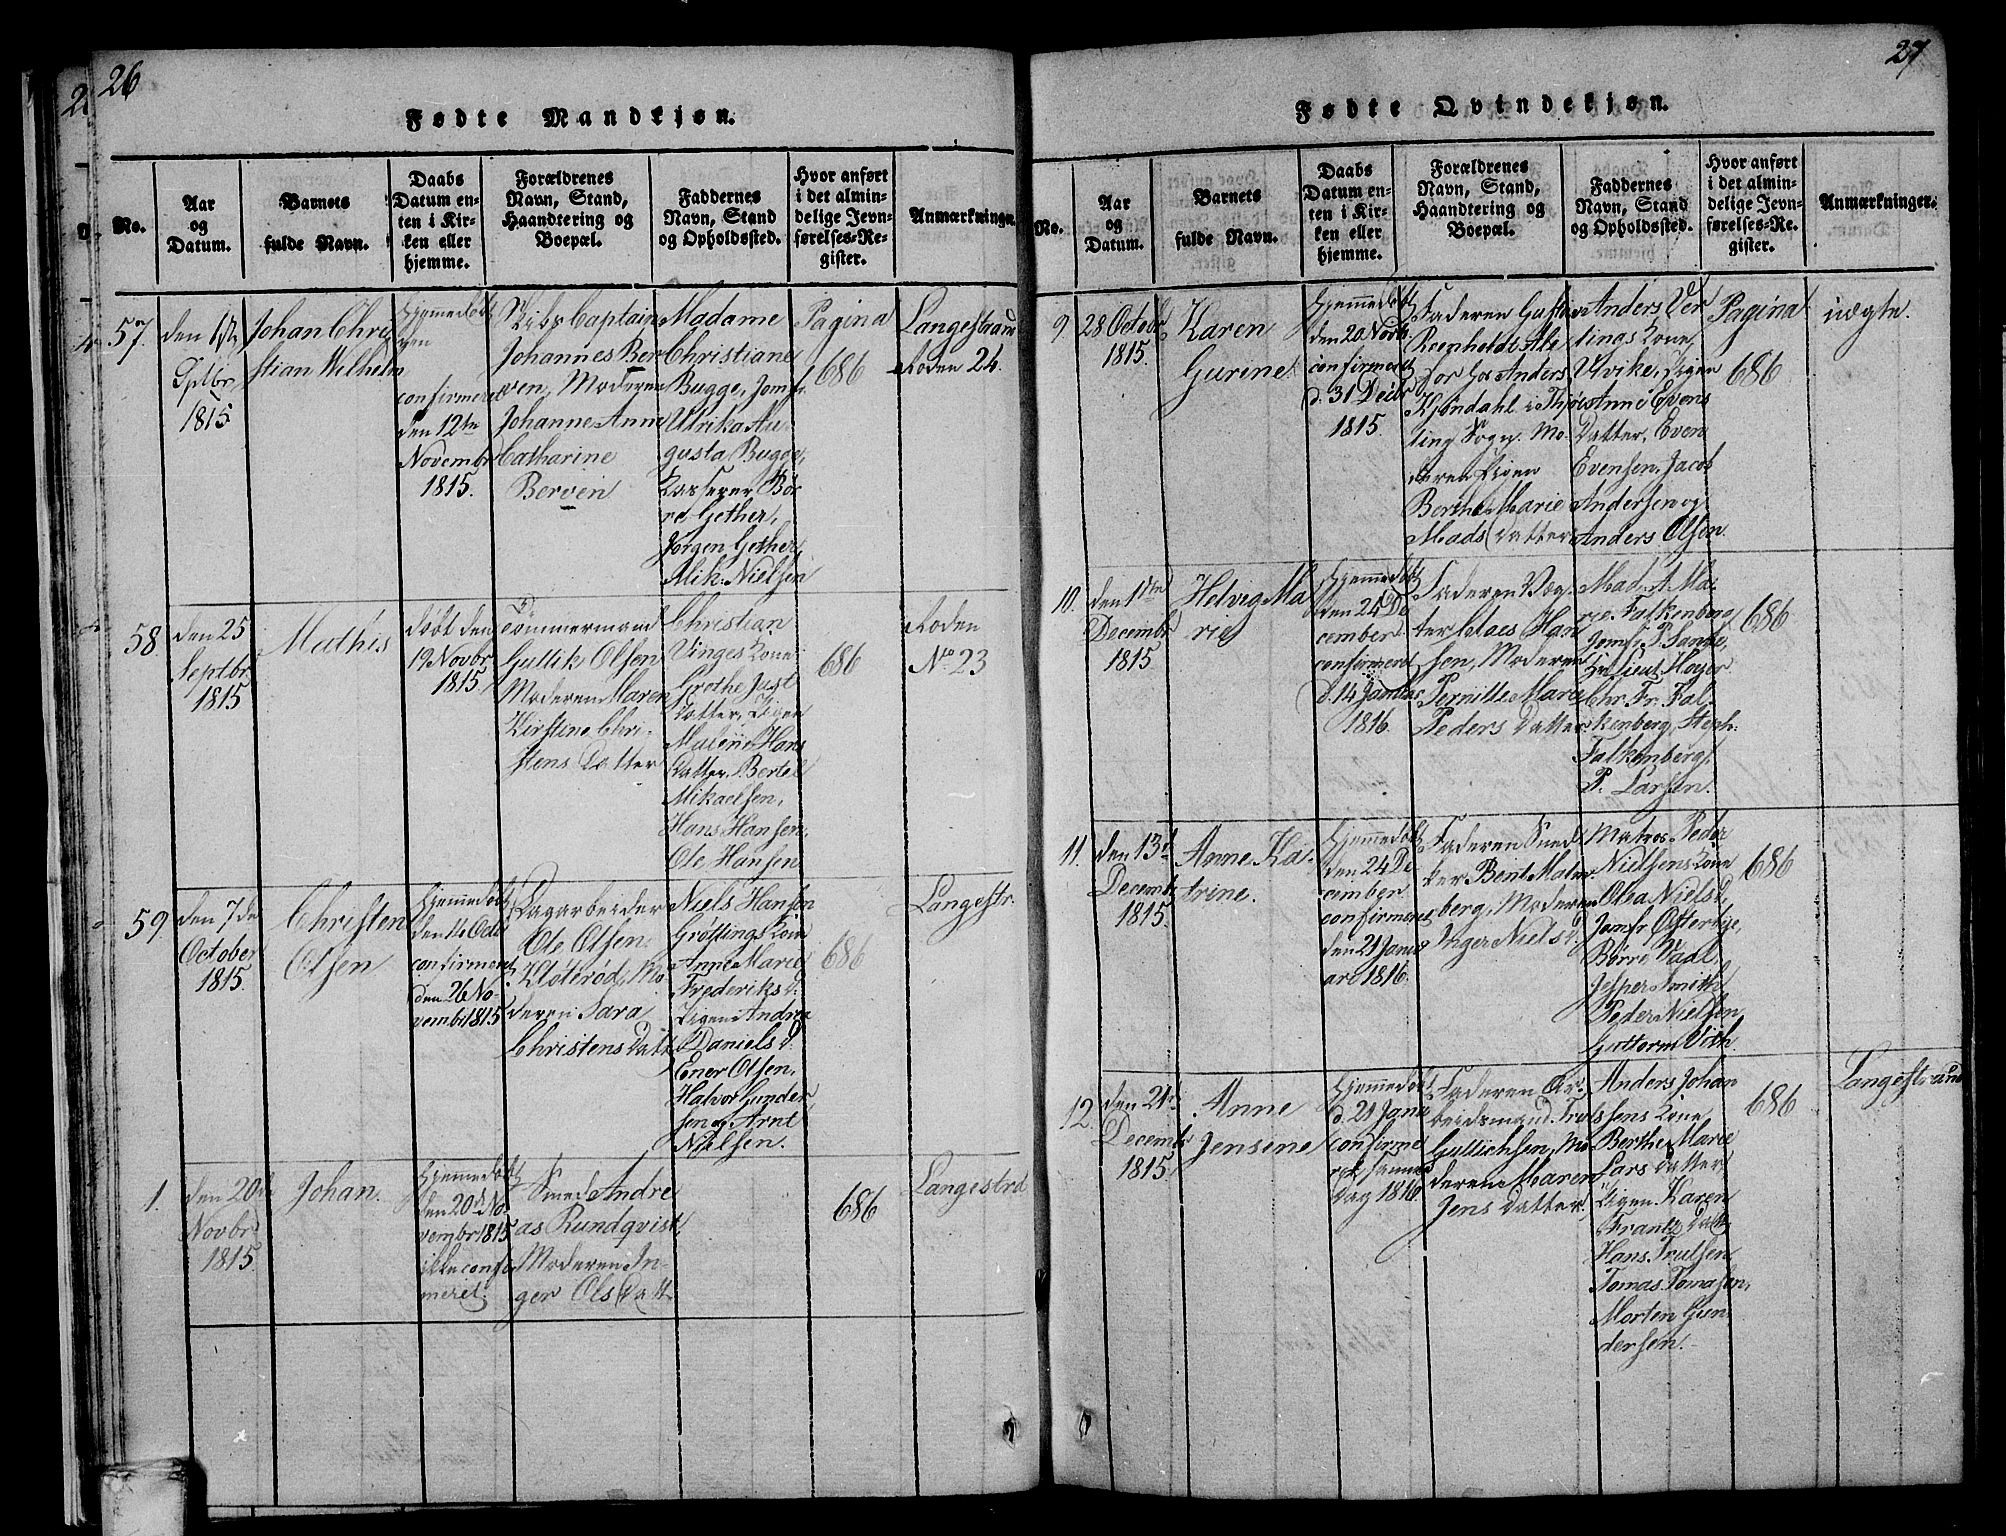 26
Fødte Mandkjøn.
No.
Aar
og
Datum.
Barnets
fulde Navn.
Daabs
Datum en-
ten i Kir-
ken eller
hjemme.
Forældrenes
Navn, Stand,
Haandtering og
Boepæl.
Faddernes
Navn, Stand
og Opholdssted.
Hvor anført
i det almin-
delige Jevn-
førelses-Re-
gister.
Anmærkninger.
57.
Sptbr
1815
Johan Chri
stian Wilhelm
Hjemmedøbt
confirmeret
den 12te
Novembr
1815.
Skibs Captain
Johannes Ber
ven, Moderen
Johanne Anne
Catharine
Berven
Madame
Christiane
Bugge, Jomfr.
Ulrika Au
gusta Bugge,
Kasserer Bör
re Gether,
Jörgen Gether,
Mik. Nielsen
Pagina
686
Langestrand
Roden 24.
58.
den 25
Septbr
1815
Mathis
döbt den
19 Novbr
1815.
Tömmermand
Gullik Olsen
Moderen Maren
Kirstine Chri-
stens Datter
Christian
Vinges Kone
Grothe Just
Datter, Pigen
Malene Hans
Datter, Bertel
Mikaelsen,
Hans Hansen,
Ole Hansen
686
Roden
No 23
59.
den 7de
October
1815.
Christen
Olsen
Hjemmedöbt
den 14 Octo
confirmeret
den 26 No-
vembr 1815
Sagarbeider
Ole Olsen
Klöteröd, Mo
deren Sara
Christens Datt
Niels Hansen
Gröttings Kone
Anne Marie
Frederiks d.
Pigen Andrea
Daniels d.
Ener Olsen,
Halvor Gunder
sen og Arnt
Nielsen.
686
Langestr.
1.
den 20d
Novbr
1815.
Johan.
Hjemmedöbt
den 20d No-
vembr 1815
ikke confir
meret.
Smed Andre
as Rundqvist,
Moderen In-
ger Ols Datt
686
Langestrd
27
Fødte Qvindekjøn.
No.
Aar
og
Datum.
Barnets
fulde Navn.
Daabs
Datum en-
ten i Kir-
ken eller
hjemme.
Forældrenes
Navn, Stand,
Haandtering og
Boepæl.
Faddernes
Navn, Stand
og Opholdssted.
Hvor anført
i det almin-
delige Jevn-
førelses-Re-
gister.
Anmærkninger.
9
28 Octobr
1815.
Karen
Gurene
Hjemmedöbt
den 20 Novb
confirmeret
d. 31 Decbr
1815.
Faderen
hos Anders
Kjöndahl i Thjø
ling Sogn. Mo-
deren Pigen
Berthe Marie
Mads Datter
Anders Ver
lings Kone,
Ulvike, Pigen
Anne Evens
Datter, Even
Evensen, Jacob
Andersen og
Anders Olsen.
Pagina
686
uægte.
10.
den 17de
Decembr
1815
Helvig Ma
rie
Hjemmedöbt
den 24 De
cember
confirmeret
d. 14 Januar
1816.
Faderen Væg-
ter Claes Han
sen, Moderen
Pernille Marie
Peders Datter
Mad. A. Ma-
rie Falkenberg,
Jomfr. P. Sange,
Hr Lieut. Hoyer
Chr. Fr. Fal-
kenberg, Steph.
Falkenberg,
P. Larsen.
686
11.
den 13d
Decembr
1815.
Anne Ka-
trine.
Hjemmedöbt
den 24 De
cember
confirmeret
den 21 Janu
ar 1816.
Faderen Sned
ker Bent Malm
berg, Moderen
Inger Niels d.
Matros Peder
Nielsens Kone
Olea Niels d,
Jomfr Österbye,
Börre Vaal,
Jesper Smith
Peder Nielsen
Guttorm Vith
686
12.
den 21de
Decembr
1815.
Anne
Jensene
Hjemmedöbt
d. 21 Janu
confirme
ret samme
Dag 1816
Faderen Ar-
beidsmand Truls
Gullichsen, Mo
deren Maren
Jens Datter
Anders Johan
sens Kone,
Berthe Marie
Lars Datter
Pigen Karen
Frantz Datt
Hans Trulsen
Tomas Tomasen,
Morten Gun
dersen.
686
Langestrand